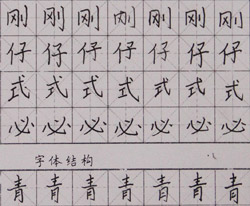 刚刚刚刚刚刚刚
仔仔仔仔仔仔仔
式式式式式式式
必必必必必必必
字体结构
青青青青青青青